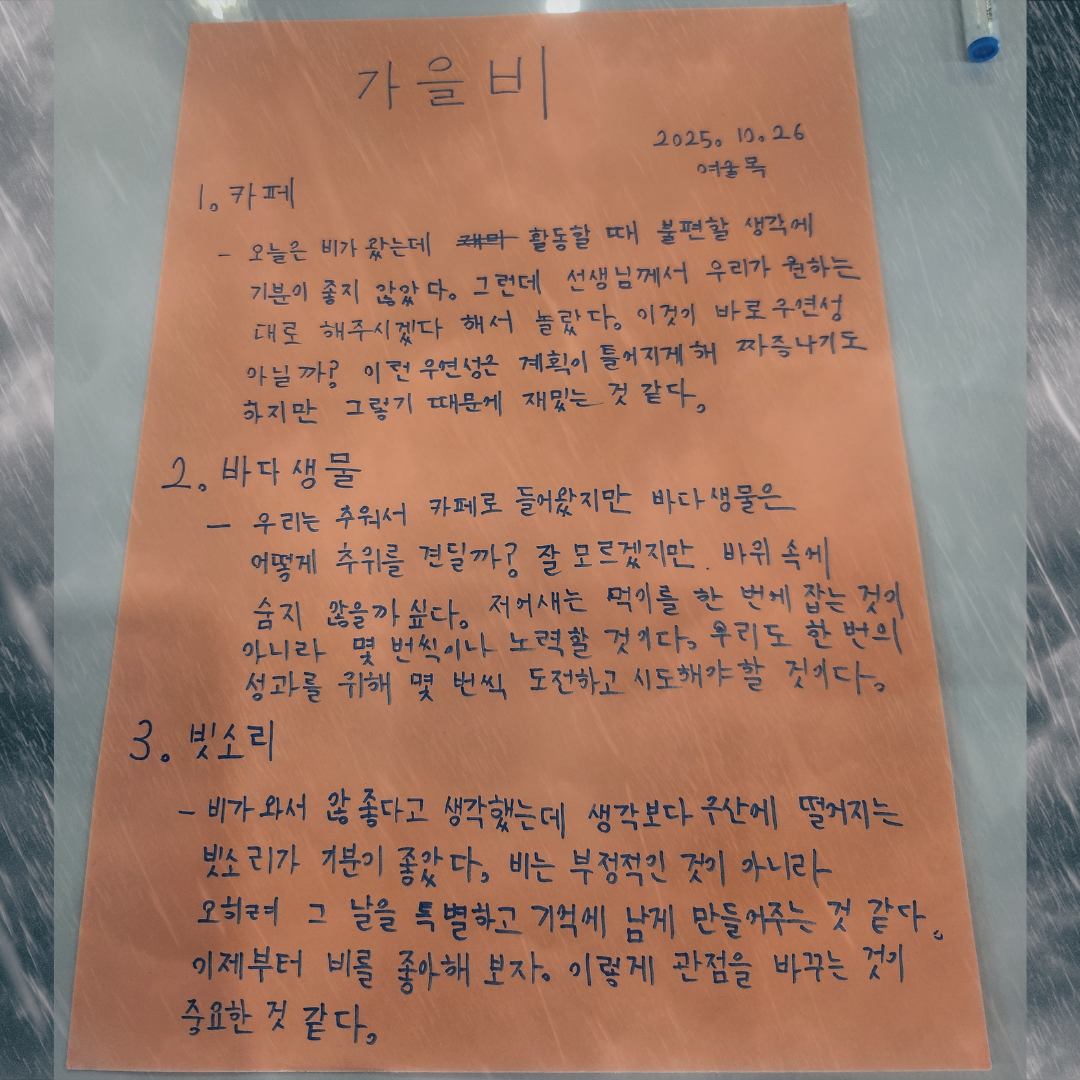 가을비
2025. 10. 26
여울목
1. 카페
- 오늘은 비가 왔는데 활동할 때 불편할 생각에
기분이 좋지 않았다. 그런데 선생님께서 우리가 원하는
대로 해주시겠다 해서 놀랐다. 이것이 바로 우연성
아닐까? 이런 우연성은 계획이 틀어지게 해 짜증나기도
하지만 그렇기 때문에 재밌는 것 같다.
2. 바다생물
- 우리는 추워서 카페로 들어왔지만 바다생물은
어떻게 추위를 견딜까? 잘 모르겠지만. 바위 속에
숨지 않을까 싶다. 저어새는 먹이를 한 번에 잡는 것이
아니라 몇 번씩이나 노력할 것이다. 우리도 한 번의
성과를 위해 몇 번씩 도전하고 시도해야 할 것이다.
3. 빗소리
- 비가 와서 않 좋다고 생각했는데 생각보다 우산에 떨어지는
빗소리가 기분이 좋았다. 비는 부정적인 것이 아니라
오히려 그 날을 특별하고 기억에 남게 만들어주는 것 같다.
이제부터 비를 좋아해 보자. 이렇게 관점을 바꾸는 것이
중요한 것 같다.